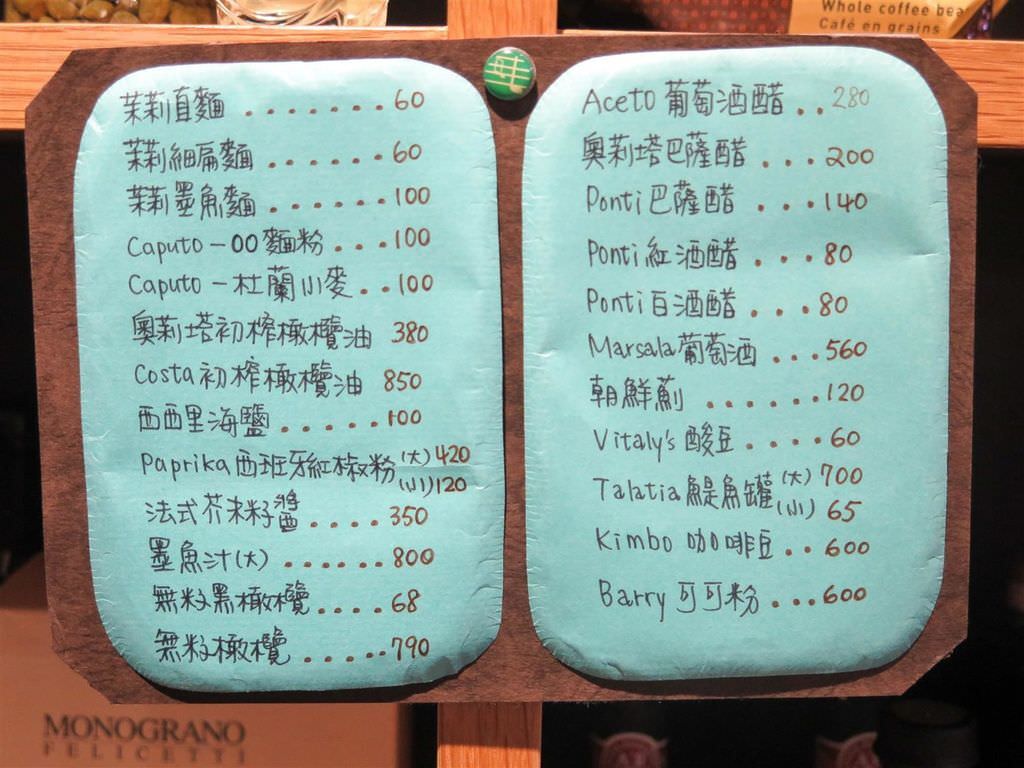 Whole coffee bea
Café en grains
茉莉直麵.......60
茉莉細扁麵......60
茉莉墨魚麵......100
Caputo-00麵粉...100
Caputo-杜蘭小麥..100
奧莉塔初榨橄欖油 380
Costa初榨橄欖油 850
西西里海鹽.....100
Paprika西班牙紅椒粉(大)420
(小)120
法式芥末籽醬....350
墨魚汁(大).....800
無籽黑橄欖....68
無籽橄欖......790
Aceto葡萄酒醋..280
奧莉塔巴薩醋...200
Ponti巴薩醋...140
Ponti紅酒醋...80
Ponti白酒醋...80
Marsala葡萄酒...560
朝鮮薊......120
Vitaly's酸豆....60
Talatia鯷魚罐(大)700
(小)65
Kimbo咖啡豆..600
Barry可可粉...600
MONOGRANO
FELICETTI